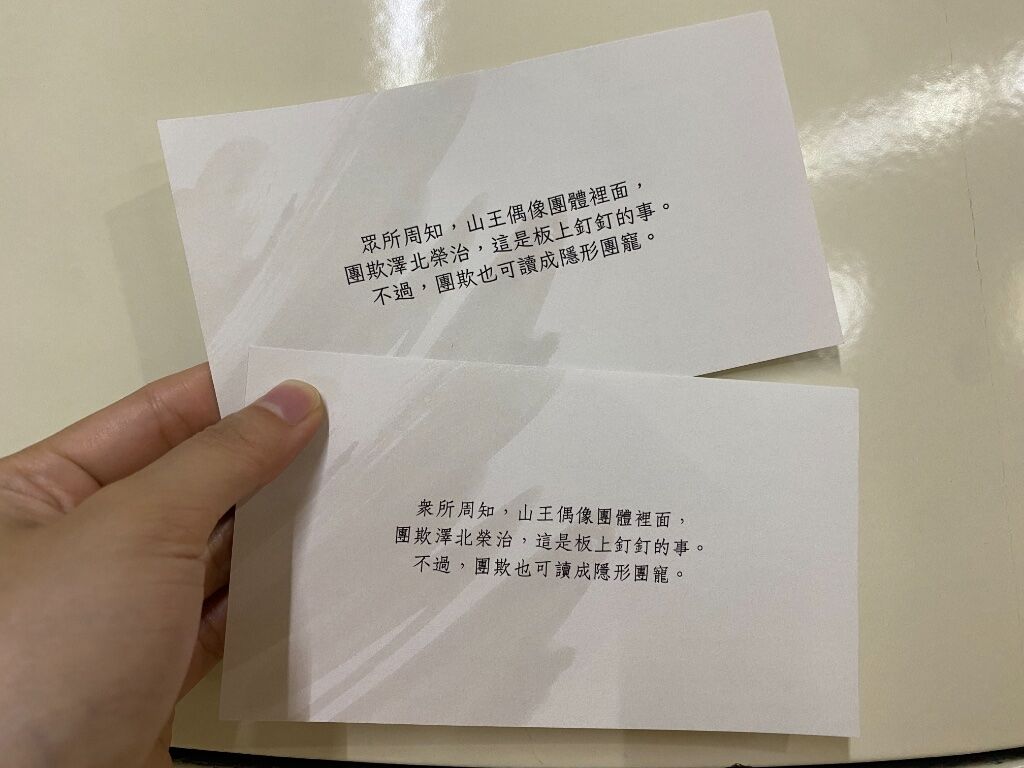 眾所周知，山王偶像團體裡面，
團欺澤北榮治，這是板上釘釘的事。
不過，團欺也可讀成隱形團寵。
衆所周知，山王偶像團體裡面，
團欺澤北榮治，這是板上釘釘的事。
不過，團欺也可讀成隱形團寵。